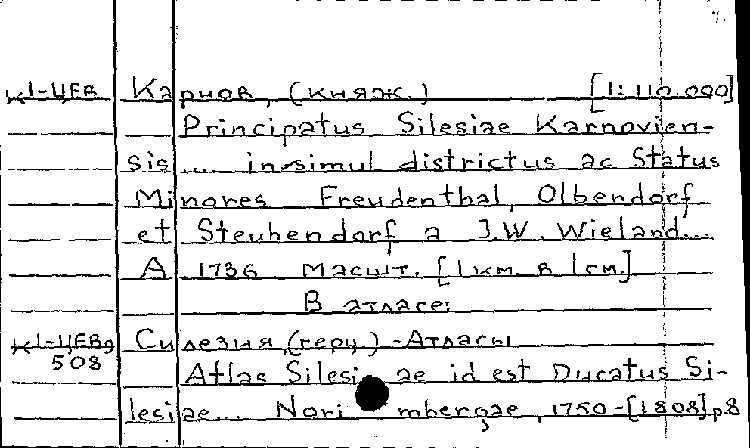 К1-ЦЕВ Карнов, (княж.) [1:110.000]
Principatus Silesiae Karnovien-
sis ... in simul districtus ac Status
Minores Freudenthal, Olbendorf
et Steuhendorf a J.W. Wieland...
А 1736 Масшт. [1 км. в 1 см.]
В атласе:
К1-ЦЕВ9 Силезия, (герц.) - Атласы
508
Atlas Silesiae id est Ducatus Si-
lesiae... Norimbergae, 1750-[1808] p.8